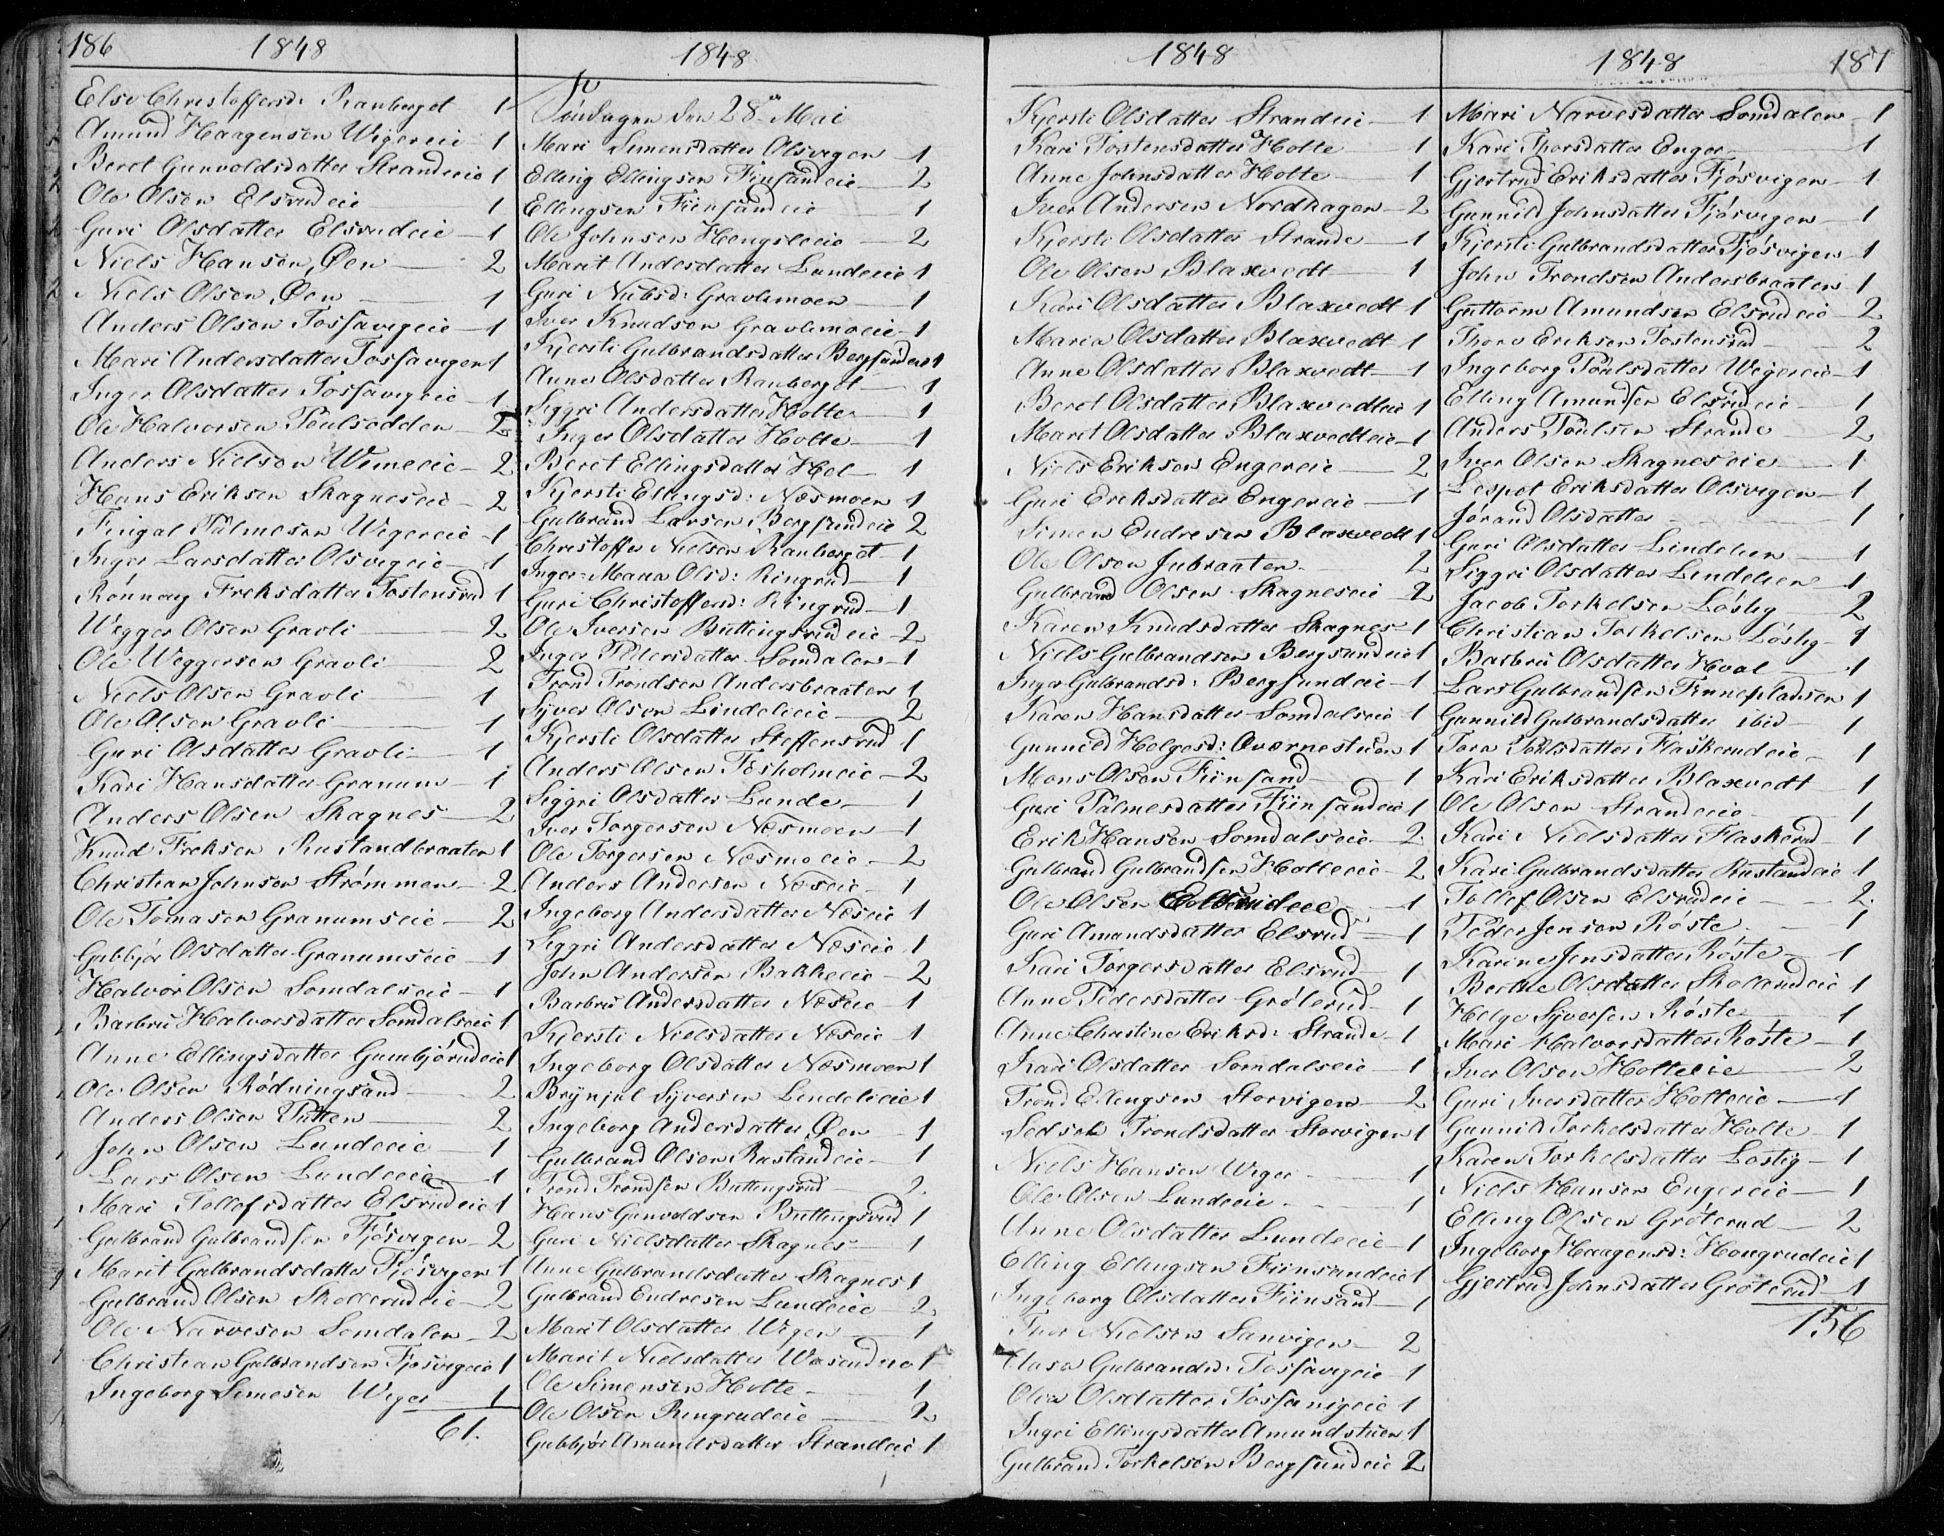 186 1848
Else Christoffersd: Ranberget 1
Amund Haagensen Wigereie 1
Beret Gunvoldsdatter Strandeeie 1
Ole Olsen Elsrudeie 1
Guri Olsdatter Elsrudeie 1
Niels Hansen Øen 2
Niels Olsen Øen 1
Anders Olsen Fossavigeie 1
Mari Andersdatter Fossavigen 1
Inger Olsdatter Fossavigeie 1
Ole Halvorsen Poulsødden 2
Anders Nielsen Wemeeie 2
Hans Eriksen Skagneseie 2
Fingal Palmesen Wigereie 1
Inger Larsdatter Olsvigeie 1
Rønnaug Freksdatter Tostensrud 1
Wegger Olsen Gravli 2
Ole Weggersen Gravli 2
Niels Olsen Gravli 1
Ole Olsen Gravli 1
Guri Olsdatter Gravli 1
Kari Hansdatter Granum 1
Anders Olsen Skagnes 2
Knud Freksen Rustandbraaten 1
Christian Johnsen Strømmen 2
Ole Tomasen Granumseie 2
Gubbjør Olsdatter Granumseie 1
Halvor Olsen Somdalseie 1
Barbru Halvorsdatter Somdalseie 1
Anne Ellingsdatter Gumbjørudeie 1
Ole Olsen Rødningsand 2
Anders Olsen Putten 2
John Olsen Lundeeie 1
Lars Olsen Lundeeie 1
Mari Tollefsdatter Elsrudeie 1
Gulbrand Gulbrandsen Fjøsvigen 2
Marit Gulbrandsdatter Fjøsvigen 1
Gulbrand Olsen Skollerudeie 2
Ole Narvesen Somdalen 2
Christian Gulbrandsen Fjøsvigeie 1
Ingeborg Simesen Weger 1
61.
1848
Søndagen den 28de Mai
Mari Simensdatter Olsvigen 1
Elling Ellingsen Fiinsandeie 2
Ellingsen Fiinsandeie 1
Ole Johnsen Hengsleeie 2
Marit Andersdatter Lundeeie 1
Guri Nubsd: Gravlimoen 1
Iver Knudsen Gravlimoeie 1
Kjersti Gulbrandsdatter Bergsundeie 1
Anne Olsdatter Ranberget 1
Siggri Andersdatter Holte 1
Inger Olsdatter Holte 1
Beret Ellingsdatter Hol 1
Kjersti Ellingsd: Næsmoen 1
Gulbrand Larsen Bergsundeie 2
Christoffer Nielsen Ranberget 1
Inger Maria Olsd: Ringrud 1
Guri Christoffersd: Ringrud 1
Ole Iversen Buttingsrudeie 2
Inger Pedersdatter Somdalen 1
Trond Trondsen Andersbraaten 1
Syver Olsen Lindelieie 2
Kjersti Olsdatter Steffensrud 1
Anders Olsen Fosholmeie 2
Siggri Olsdatter Lunde 1
Iver Torgersen Næsmoen 1
Ole Torgersen Næsmoeie 2
Anders Andersen Næseie 1
Ingeborg Andersdatter Næseie 1
Siggri Andersdatter Næseie 1
John Andersen Bakkeeie 2
Barbru Andersdatter Næseie 1
Kjersti Nielsdatter Næseie 1
Ingeborg Olsdatter Næsmoen 1
Brynjul Syversen Lindelieie 1
Ingeborg Andersdatter Øen 1
Gulbrand Olsen Rustandeie 1
Trond Trondsen Buttingsrud 2
Hans Gunvoldsen Buttingsrud 1
Guri Nielsdatter Skagnes 1
Anne Gulbrandsdatter Skagnes 1
Gulbrand Endresen Lundeeie 2
Marit Olsdatter Wegen 1
Marit Nielsdatter 1
Ole Simensen Holte 1
Ole Olsen Ringrudeie 2
Gubbjør Amundsdatter Strandeie 1
1848
Kjersti Olsdatter Strandeie 1
Kari Tostensdatter Holte 1
Anne Johnsdatter Holte 1
Iver Andersen Nordhagen 2
Kjersti Olsdatter Strande 1
Ole Olsen Blaxvedt 1
Kari Olsdatter Blaxvedt 1
Maria Olsdatter Blaxvedt 1
Anne Olsdatter Blaxvedt 1
Beret Olsdatter Blaxvedteie 1
Marit Olsdatter Blaxvedteie 1
Niels Eriksen Engereie 2
Guri Eriksdatter Engereie 1
Simen Endresen Blaxvedt 1
Ole Olsen Jubraaten 2
Gulbrand Olsen Skagneseie 2
Karen Knudsdatter Skagnes 1
Niels Gulbrandsen Bergsundeie 1
Inger Gulbrandsd: Bergsundeie 1
Karen Hansdatter Somdalseie 1
Gunnild Helgesd: Qværnestuen 1
Mons Olsen Fiinsand 1
Guri Palmesdatter Fiinsandeie 1
Erik Hansen Somdalseie 2
Gulbrand Gulbrandsen Holteeie 2
Ole Olsen Elsrudeie 1
Guri Amundsdatter Elsrud 1
Kari Torgersdatter Elsrud 1
Anne Pedersdatter Grøterud 1
Anne Christine Eriksd: Strande 1
Kari Olsdatter Somdalseie 1
Trond Ellingsen Storvigen 2
Sedsele Trondsdatter Storvigen 1
Niels Hansen Weger 1
Ole Olsen Lundeeie 1
Anne Olsdatter Lundeeie 1
Elling Ellingsen Fiinsandeie 1
Ingeborg Olsdatter Fiinsand 1
Iver Nielsen Sanvigen 2
Aase Gulbrandsd: Fossavigeie 1
Olea Olsdatter Fossavigeie 1
Ingri Ellingsdatter Amundstuen 1
Gulbrand Torkelsen Bergsundeie 2
1848 187
Mari Narvesdatter Somdalen 1
Kari Thorsdatter Enger 1
Gjertrud Eriksdatter Fjøsvigen 1
Gunnild Johnsdatter Fjøsvigen 1
Kjersti Gulbrandsdatter Fjøsvigen 1
John Trondsen Andersbraaten 1
Guttorm Amundsen Elsrudeie 2
Thore Eriksen Tostensrud 2
Ingeborg Poulsdatter Wegereie 1
Elling Amundsen Elsrudeie 1
Anders Poulsen Strande 2
Iver Olsen Skagneseie 1
Lespet Eriksdatter Olsvigen 1
Jørand Olsdatter 1
Guri Olsdatter Lindelien 1
Siggri Olsdatter Lindelien 1
Jacob Torkelsen Løslig 2
Christian Torkelsen Løslig 1
Barbru Olsdatter Hval 1
Lars Gulbrandsen Finnepladsen 1
Gunnild Gulbrandsdatter ibid 1
Tore Poulsdatter Flaskerudeie 1
Kari Eriksdatter Blaxvedt 1
Ole Olsen Strandeeie 1
Kari Nielsdatter Flaskerud 1
Kari Gulbrandsdatter Rustandeie 1
Tollef Olsen Elsrudeie 2.
Peder Jensen Røste 1
Karine Jensdatter Røste 1
Berthe Olsdatter Skollerudeie 1
Helge Syversen Røste 1
Mari Halvorsdatter Røste 1
Iver Olsen Holteeie 2
Guri Iversdatter Holteeie 1
Gunnild Torkelsdatter Holte 1
Karen Torkelsdatter Løslig 1
Niels Hansen Engereie 1
Elling Olsen Grøterud 2
Ingeborg Haagensd: Haugrudeie 1
Gjertrud Johnsdatter Grøterud 1
156